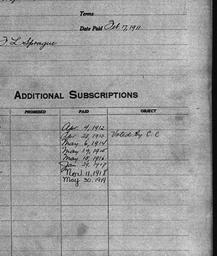 Terms
Date Paid Oct. 17, 1911
F L Sprague
ADDITIONAL SUBSCRIPTIONS
PROMISED PAID OBJECT
Apr 4, 1912
Apr 28, 1913 Voted by C. C
May 6, 1914
May 19, 1915
May 18, 1916
Jan 29, 1917
Nov. 11, 1918
May 30, 1919